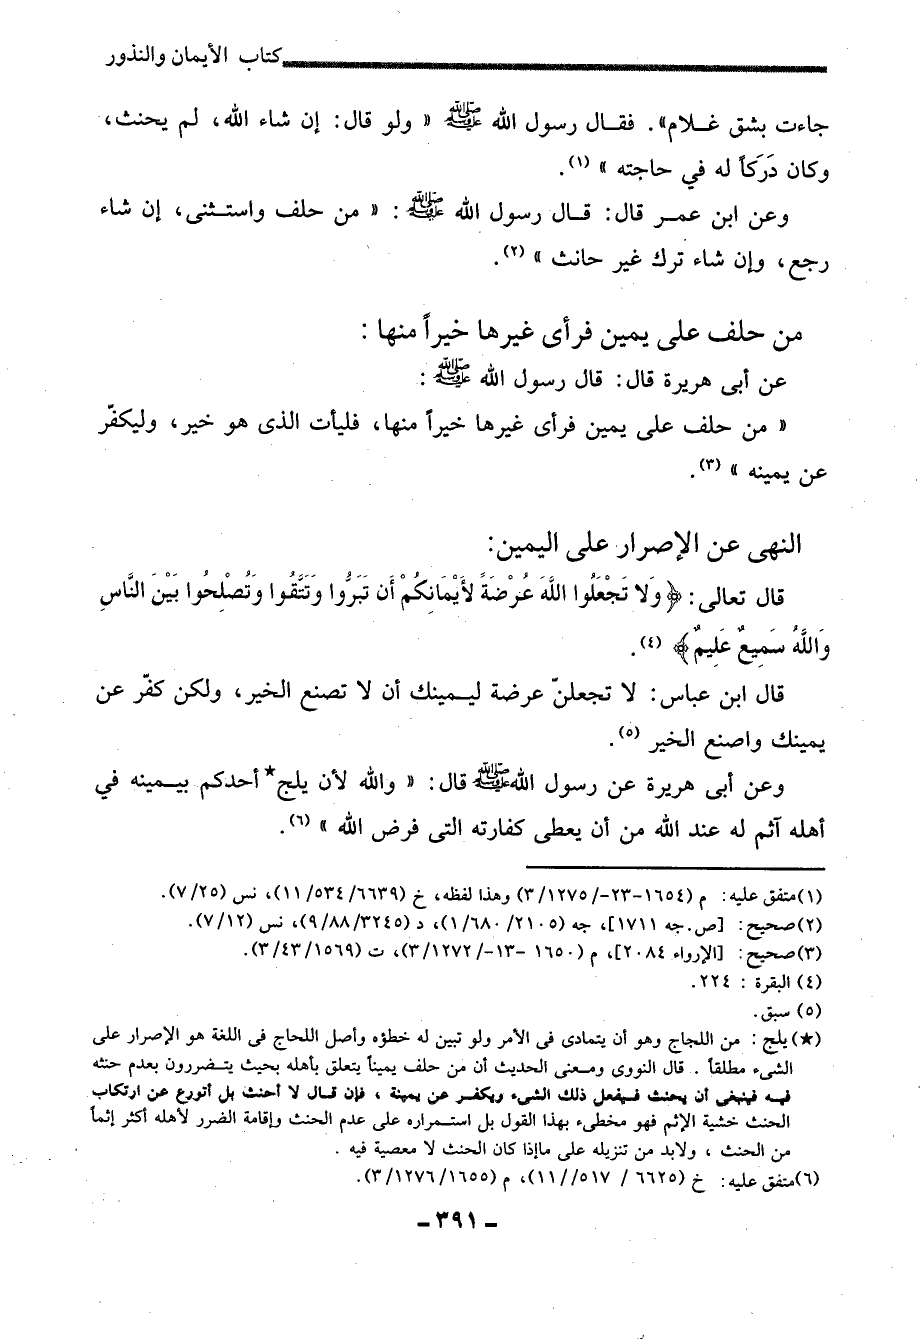 كتاب الأيمان والنذور
جاءت بشق غلام». فقال رسول الله ﷺ « ولو قال: إن شاء الله، لم يحنث،
وكان دَرَكاً له في حاجته » (١).
وعن ابن عمر قال: قال رسول الله ﷺ : « من حلف واستثنى، إن شاء
رجع، وإن شاء ترك غير حانث » (٢).
من حلف على يمين فرأى غيرها خيراً منها :
عن أبى هريرة قال: قال رسول الله ﷺ :
« من حلف على يمين فرأى غيرها خيراً منها، فليأت الذى هو خير، وليكفّر
عن يمينه » (٣).
النهى عن الإصرار على اليمين:
قال تعالى: ﴿وَلا تَجْعَلُوا اللَّهَ عُرْضَةً لأَيْمَانِكُمْ أَن تَبَرُّوا وَتَتَّقُوا وَتُصْلِحُوا بَيْنَ النَّاسِ
وَاللَّهُ سَمِيعٌ عَلِيمٌ﴾ (٤).
قال ابن عباس: لا تجعلنّ عرضة ليمينك أن لا تصنع الخير، ولكن كفّر عن
يمينك واصنع الخير (٥).
وعن أبى هريرة عن رسول الله ﷺ قال: « والله لأن يلج★ أحدكم بيمينه في
أهله آثم له عند الله من أن يعطى كفارته التى فرض الله » (٦).
(١)متفق عليه: م (١٦٥٤-٢٣-/٣/١٢٧٥) وهذا لفظه، خ (٦٦٣٩/٥٣٤/١١)، نس (٧/٢٥).
(٢)صحيح: [ص.جه ١٧١١]، جه (٢١٠٥/١/٦٨٠)، د (٣٢٤٥/٩/٨٨)، نس (٧/١٢).
(٣)صحيح: [الإرواء ٢٠٨٤]، م (١٦٥٠ -١٣-/٣/١٢٧٢)، ت (١٥٦٩/٣/٤٣).
(٤) البقرة : ٢٢٤.
(٥) سبق.
(★)يلج : من اللجاج وهو أن يتمادى فى الأمر ولو تبين له خطؤه وأصل اللحاج فى اللغة هو الإصرار على
الشىء مطلقاً . قال النووى ومعنى الحديث أن من حلف يميناً يتعلق بأهله بحيث يتضررون بعدم حنثه
فيه فينبغى أن يحنث فيفعل ذلك الشىء ويكفر عن يمينة ، فإن قال لا أحنث بل أتورع عن ارتكاب
الحنث خشية الإثم فهو مخطىء بهذا القول بل استمراره على عدم الحنث وإقامة الضرر لأهله أكثر إثماً
من الحنث ، ولابد من تنزيله على ماإذا كان الحنث لا معصية فيه .
(٦)متفق عليه: خ (٦٦٢٥ / ٥١٧//١١)، م (١٦٥٥/٣/١٢٧٦).
- ٣٩١ -